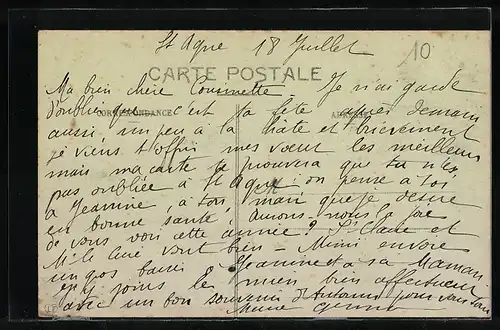 St Agne 18 Juillet
10
CARTE POSTALE
Ma bien chère Cousinette - Je n'ai garde
CORRESPONDANCE
ADRESSE
d'oublier que c'est ta fête après demain
aussi un peu à la hâte et brièvement
je viens t'offrir mes vœux les meilleurs
mais ma carte te prouvera que tu n'es
pas oubliée à St Agne; on pense à toi
à Jeannine, à ton mari que je désire
en bonne santé, aurons-nous la joie
de vous voir cette année? St Claire et
Mlle vont bien - Mimi envoie
un gos baiser à Jeannine et à sa Maman
j'y joins le mien bien affectueux
avec un bon souvenir d'Antonin pour vous trois